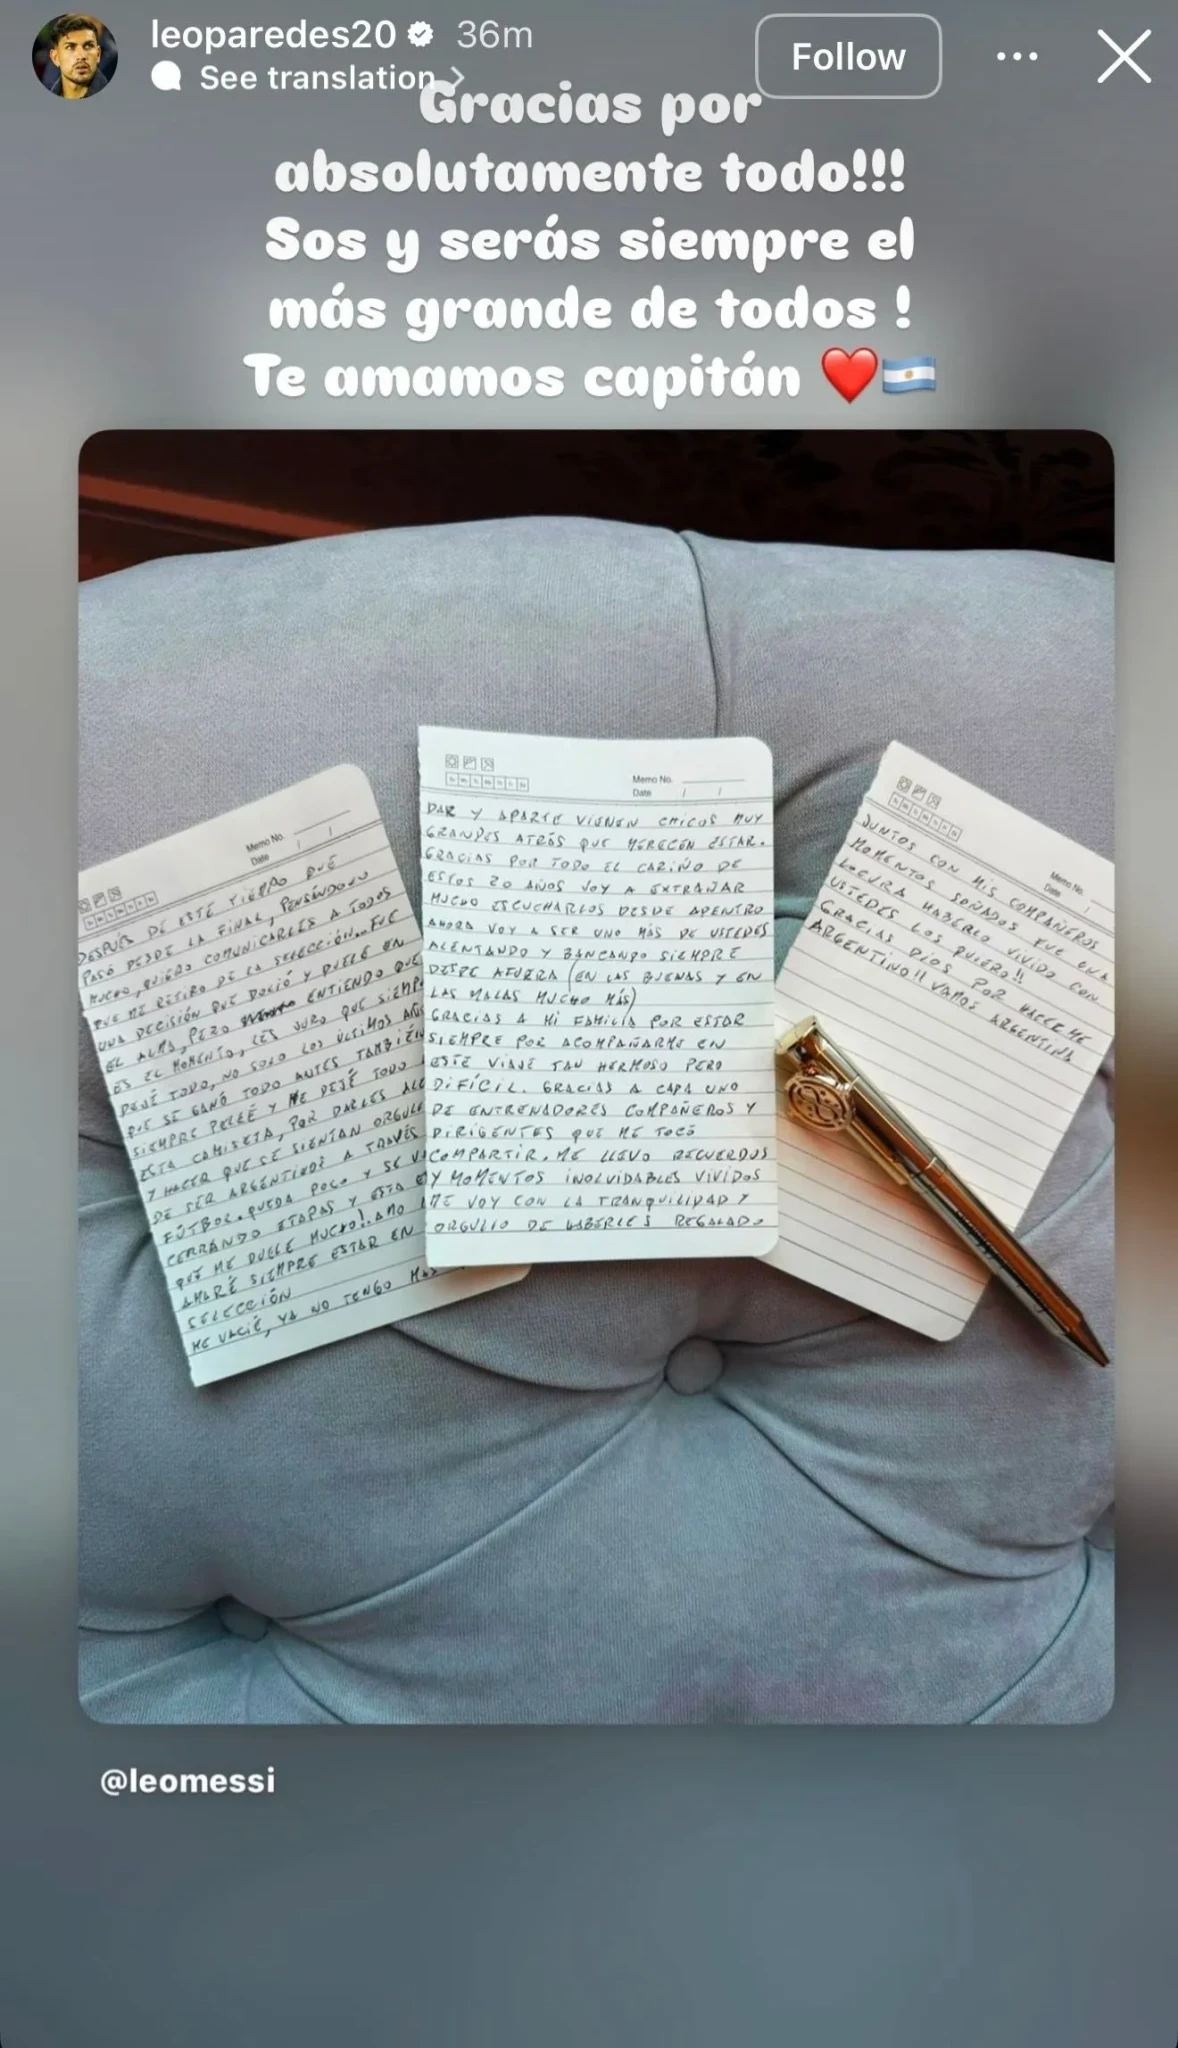 leoparedes20 36m
See translation
Follow
Gracias por
absolutamente todo!!!
Sos y serás siempre el
más grande de todos !
Te amamos capitán ❤️🇦🇷
Memo No.
Date / /
DESPUÉS DE ESTE TIEMPO QUE
PASÓ DESDE LA FINAL, PENSÁNDOLO
MUCHO, QUIERO COMUNICARLES A TODOS
QUE ME RETIRO DE LA SELECCIÓN... FUE
UNA DECISIÓN QUE DOLIÓ Y DUELE EN
EL ALMA, PERO ENTIENDO QUE
ES EL MOMENTO, LES JURO QUE SIEMP
DEJÉ TODO, NO SOLO LOS ÚLTIMOS AÑ
QUE SE GANÓ TODO ANTES TAMBIÉN
SIEMPRE PELEÉ Y ME DEJÉ TODO
ESTA CAMISETA, POR DARLES AL
Y HACER QUE SE SIENTAN ORGULL
DE SER ARGENTINOS A TRAVÉS
FÚTBOL. QUEDA POCO Y SE V
CERRANDO ETAPAS Y ESTA
QUE ME DUELE MUCHO! AMO
AMARÉ SIEMPRE ESTAR EN
SELECCIÓN
ME VACIÉ, YA NO TENGO MÁS
Memo No.
Date / /
DAR Y APARTE VIENEN CHICOS MUY
GRANDES ATRÁS QUE MERECEN ESTAR.
GRACIAS POR TODO EL CARIÑO DE
ESTOS 20 AÑOS VOY A EXTRAÑAR
MUCHO ESCUCHARLOS DESDE ADENTRO
AHORA VOY A SER UNO MÁS DE USTEDES
ALENTANDO Y BANCANDO SIEMPRE
DESDE AFUERA (EN LAS BUENAS Y EN
LAS MALAS MUCHO MÁS)
GRACIAS A MI FAMILIA POR ESTAR
SIEMPRE POR ACOMPAÑARME EN
ESTE VIAJE TAN HERMOSO PERO
DIFÍCIL. GRACIAS A CADA UNO
DE ENTRENADORES COMPAÑEROS Y
DIRIGENTES QUE ME TOCÓ
COMPARTIR. ME LLEVO RECUERDOS
Y MOMENTOS INOLVIDABLES VIVIDOS
ME VOY CON LA TRANQUILIDAD Y
ORGULLO DE HABERLES REGALADO
Memo No.
Date /
JUNTOS CON MIS COMPAÑEROS
MOMENTOS SOÑADOS FUE UNA
LOCURA HABERLO VIVIDO CON
USTEDES LOS QUIERO!!
GRACIAS DIOS POR HACERME
ARGENTINO!! VAMOS ARGENTINA
@leomessi